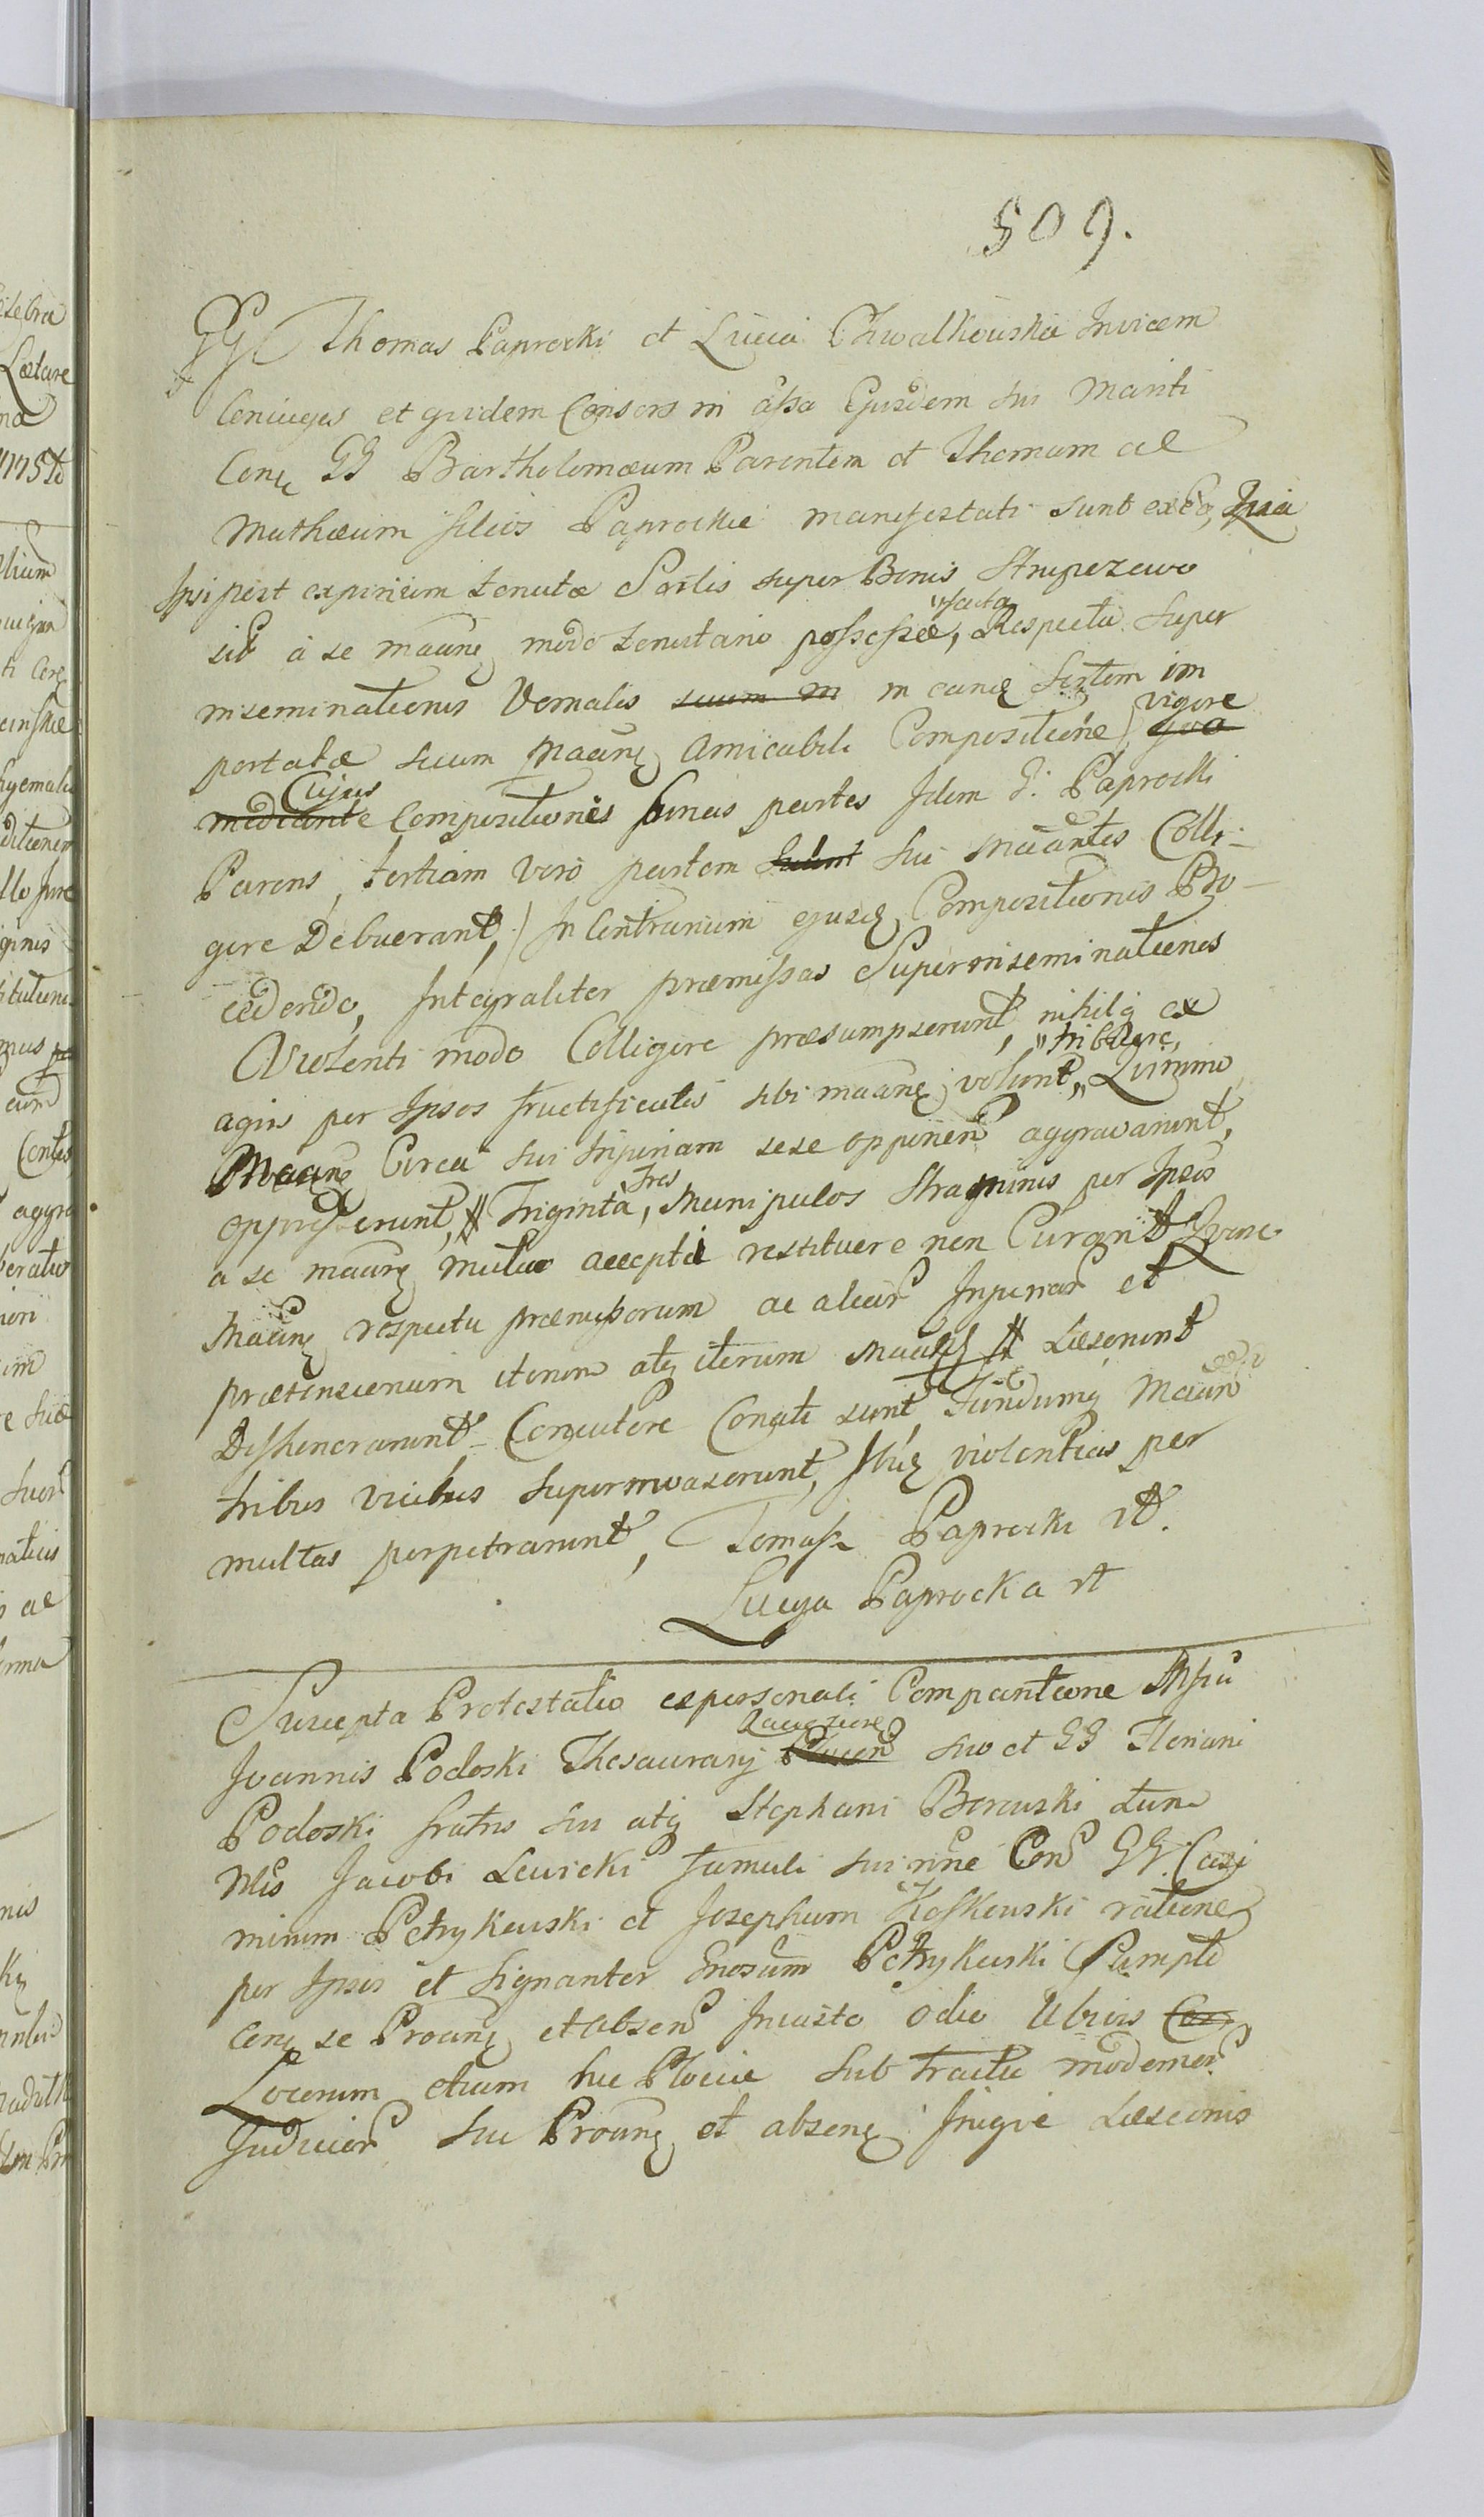 509.
GG Thomas Paprocki et Lucia Chwalkowska Invicem
Coniuges et quidem Consors in assa Ejusdem sui Mariti
Conq GG Bartholomæum Parentem et Thomam ac
Mathæum filios Paprockie manifestati sunt ex eo, Quia
Ipsi post expirium tenutæ Sortis super Bonis Strupczewo
sit a se maanq modo tenutario possessæ, "facta Respectu super
inseminationis Vernalis suum in in eanq Sortem im
portatæ suum Maanq Amicabili Compositione) vigore qua
mediante Cujus Compositionis binas partes Idem G. Paprocki
Parens, tertiam vero partem sui Maantes Colli-
gere Debuerant,) In Contrarium ejusq Compositionis Pro-
cedendo, Integraliter præmissas Superinseminationes
Violenti modo Colligere præsumpserunt, nihilq ex
agris per Ipsos fructificatis sibi maanq volunt, "tribuere, Quinimo
Maanq Circa sui Injuriam sese opponen aggravarunt,
oppresserunt, Triginta Tres, Manipulos Straminis per Ipsos
a se maanq mutuo accepta restituere non Curant,
Maanq respectu præmissorum ac aliar Injuriar et
prætensionum iterum atq iterum Læserunt
Dishonorarunt Concutere Conati sunt Fundumq Maan
tribus vicibus superinvaserunt, Ibiq violentias per
multas perpetrarunt, Tomasz Paprocki rt.
Lucya Paprocka rt
Suscepta Protestatio ex personali Comparitione Msci
Joannis Podoski Thesaurary Racioziens suo et GG Floriani
Podoski fratris sui atq Stephani Borowski tum
Mlis Jacobi Lewicki famuli sui nne Con GG. Casi
mirum Petrykowski et Josephum Koskowski ratione
per Ipsos et signanter Gnosum Petrykowski Sumpti
Conq se Proanq et absen Iniusto odio Ubivis
Locorum etiam hic Plociæ sub Tractu moderner
Judicior sui Proanq et absenq Iniqie Læsionis